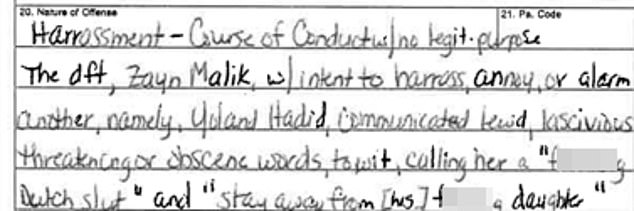 20. Nature of Offense 21. Pa. Code
Harrassment - Course of Conduct w/no legit. purpose
The dft, Zayn Malik, w/ intent to harrass, annoy, or alarm
another, namely, Yoland Hadid, communicated lewd, lascivious
threatening or obscene words, to wit, calling her a "f g
Dutch slut" and "stay away from [his] f g daughter"